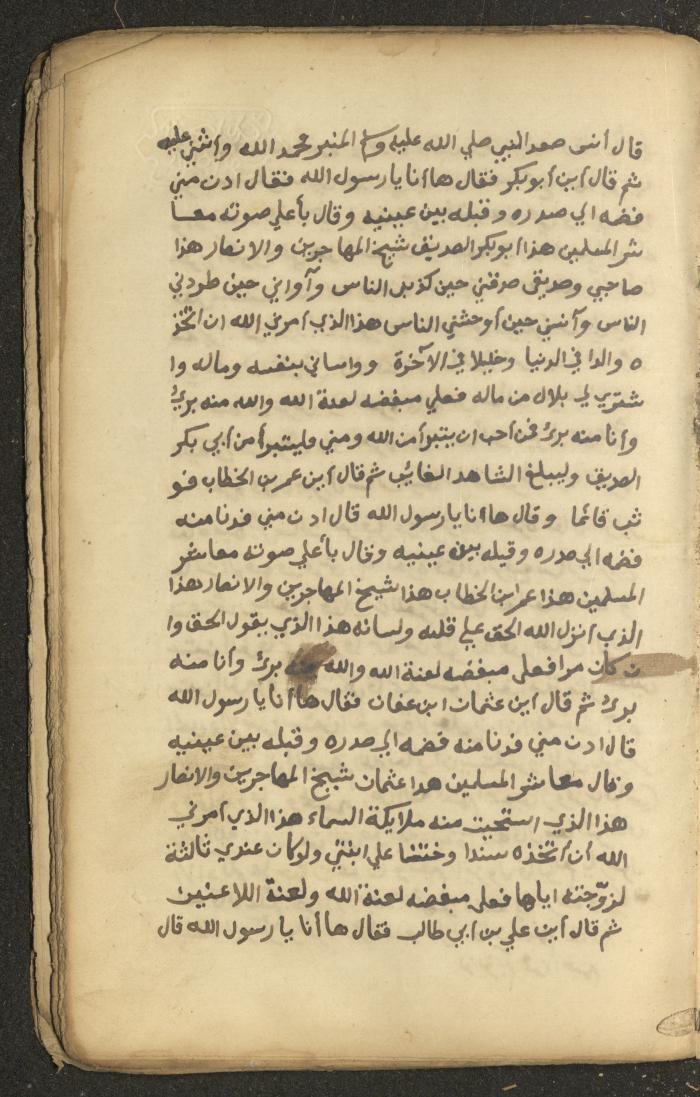 قال أنس صعد النبي صلي الله عليه وسلم المنبر محمد الله وأثني عليه
ثم قال أين أبوبكر فقال ها أنا يا رسول الله فقال ادن مني
فضمه الي صدره وقبله بين عينيه وقال بأعلي صوته معا
شر المسلمين هذا أبوبكر الصديق شيخ المهاجرين والانصار هذا
صاحبي وصديقي صدقني حين كذبني الناس وآواني حين طردني
الناس وآنسني حين أوحشني الناس هذا الذي أمرني الله ان اتخذ
ه والدا في الدنيا وخليلا في الآخرة وواساني بنفسه وماله وا
شتري لي بلال من ماله فعلي مبغضه لعنة الله والله منه بريءُ
وأنا منه بريءُ فمن أحب ان يتبرأ من الله ومني فليتبرأ من أبي بكر
الصديق وليبلغ الشاهد الغائب ثم قال أين عمر بن الخطاب فو
ثب قائما وقال ها أنا يا رسول الله قال ادن مني فدنا منه
فضمه الي صدره وقبله بين عينيه وقال بأعلي صوته معاشر
المسلمين هذا عمر ابن الخطاب هذا شيخ المهاجرين والانصار هذا
الذي أنزل الله الحق علي قلبه ولسانه هذا الذي يقول الحق وا
ن كان مرا فعلي مبغضه لعنة الله والله منه بريءُ وأنا منه
بريءُ ثم قال أين عثمان ابن عفان فقال ها أنا يا رسول الله
قال ادن مني فدنا منه فضمه الي صدره وقبله بين عينيه
وقال معاشر المسلمين هدا عثمان شيخ المهاجرين والانصار
هذا الذي استحيت منه ملايكة السماء هذا الذي أمرني
الله أن أتخذه سندا وختنا علي ابنتي ولو كان عندي ثالثة
لزوّجته اياها فعلي مبغضه لعنة الله ولعنة اللاعنين
ثم قال أين علي بن أبي طالب فقال ها أنا يا رسول الله قال